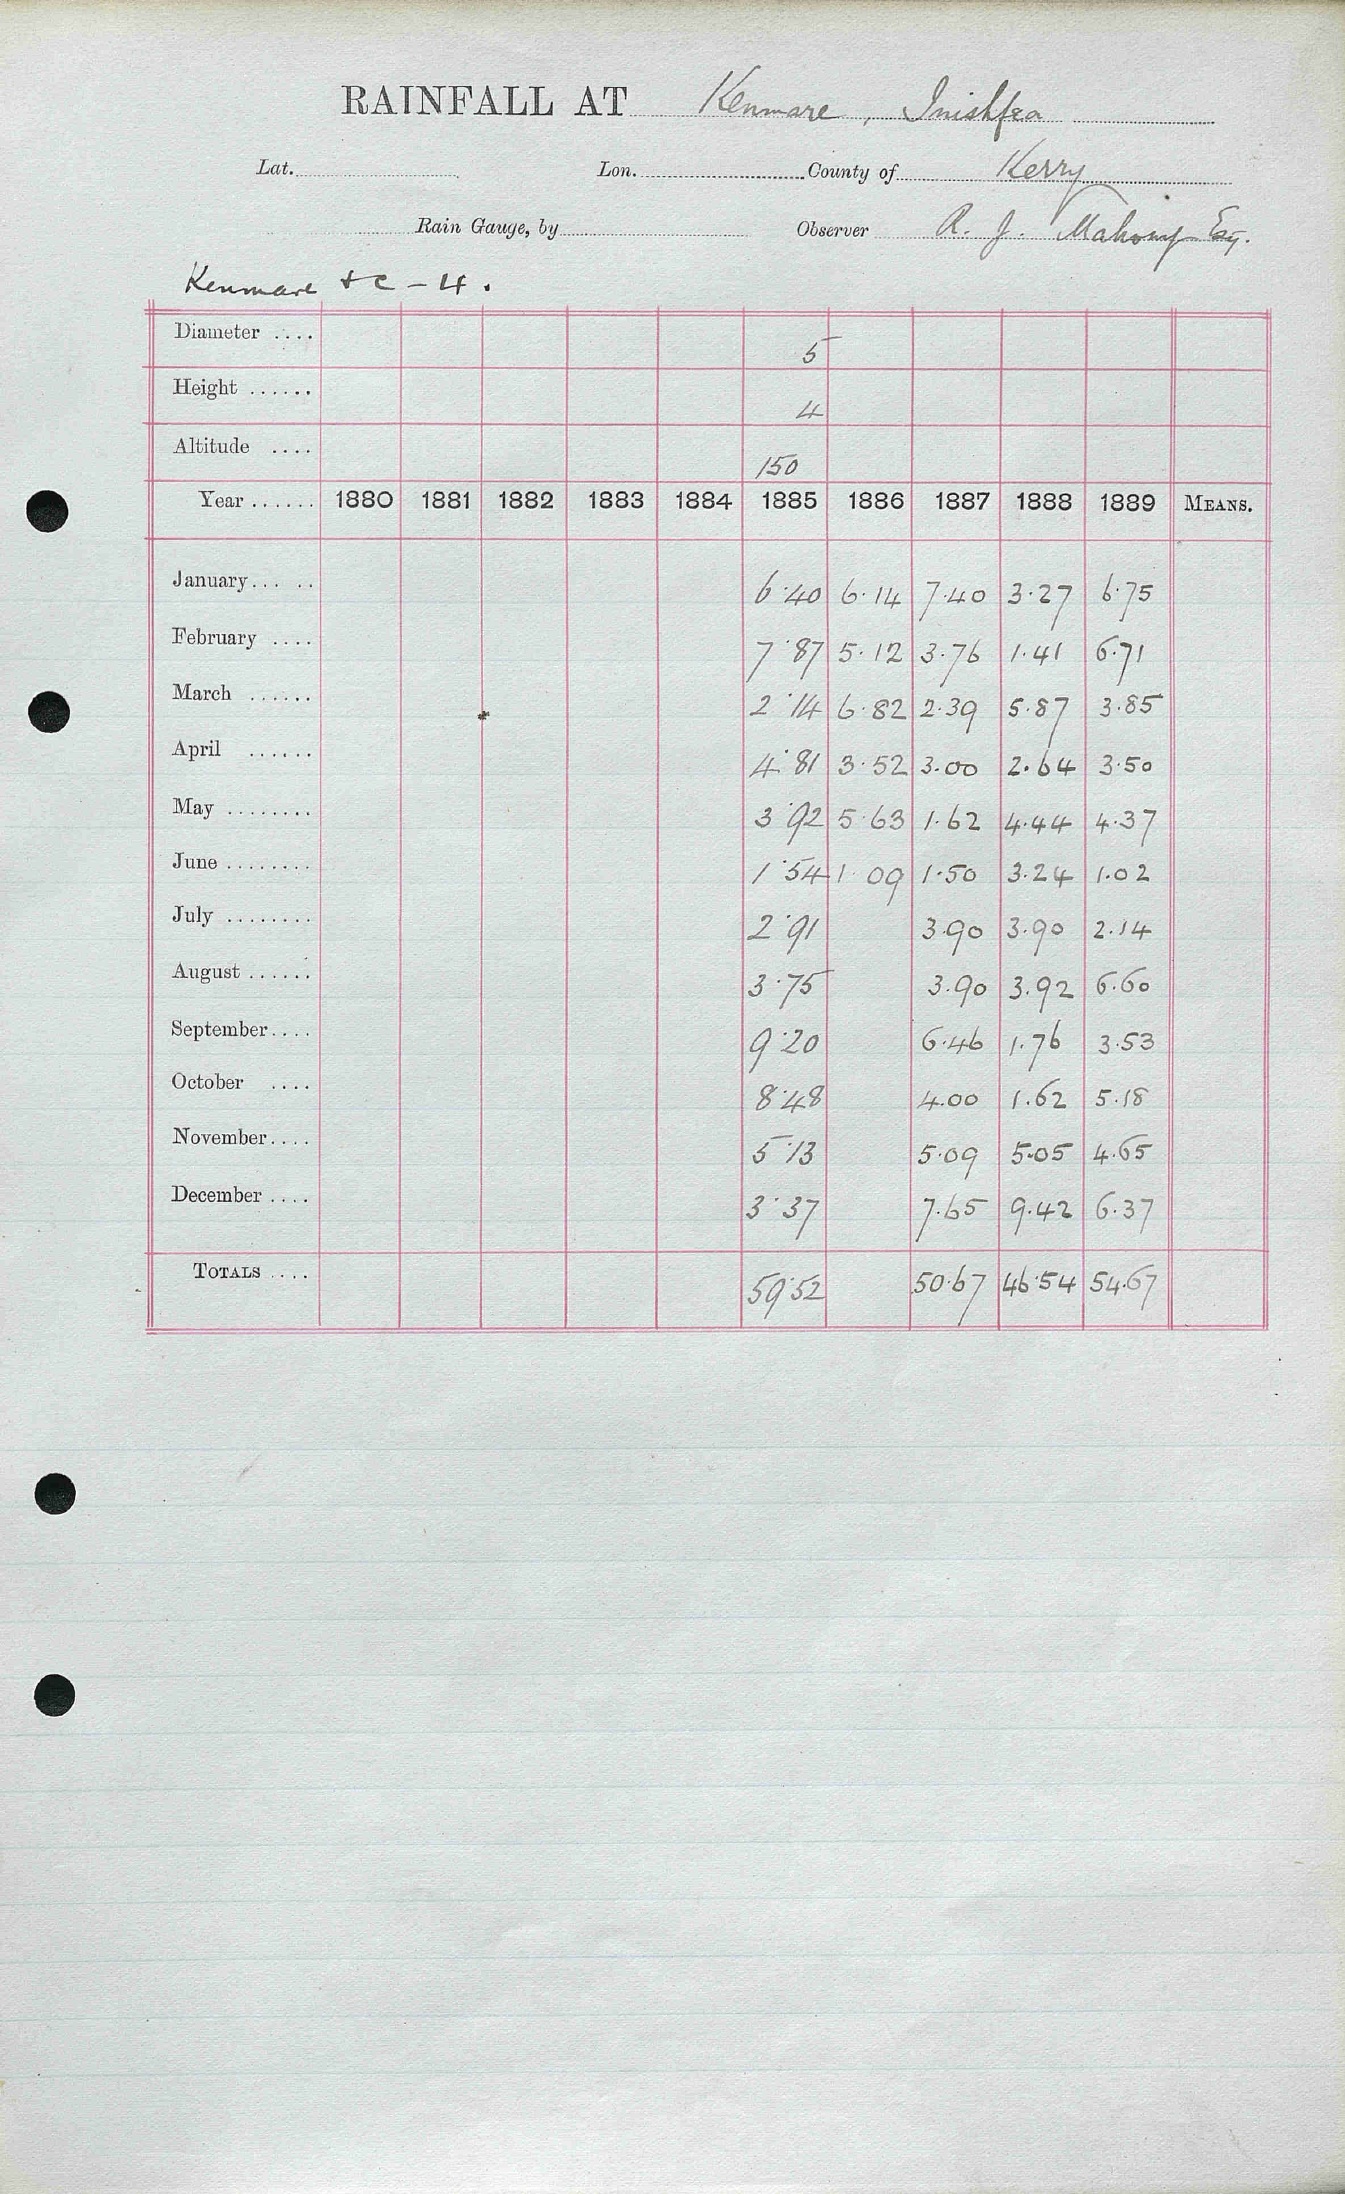 RAINFALL AT Kenmare, Inishfra
Lat. Lon. County of Kerry
Rain Gauge, by Observer R. J. Mahony Esq.
Kenmare & C - 4.
Diameter .... 5
Height ...... 4
Altitude .... 150
Year ...... 1880 1881 1882 1883 1884 1885 1886 1887 1888 1889 MEANS.
January ..... 6.40 6.14 7.40 3.27 6.75
February .... 7.87 5.12 3.76 1.41 6.71
March ...... 2.14 6.82 2.39 5.87 3.85
April ...... 4.81 3.52 3.00 2.64 3.50
May ........ 3.92 5.63 1.62 4.44 4.37
June ........ 1.54 1.09 1.50 3.24 1.02
July ........ 2.91 3.90 3.90 2.14
August ...... 3.75 3.90 3.92 6.60
September .... 9.20 6.46 1.76 3.53
October .... 8.48 4.00 1.62 5.18
November .... 5.13 5.09 5.05 4.65
December .... 3.37 7.65 9.42 6.37
TOTALS .... 59.52 50.67 46.54 54.67